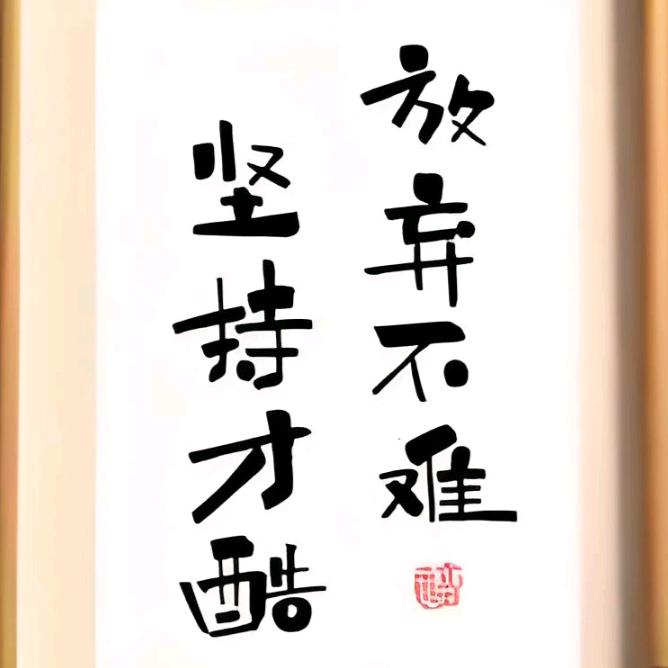 放弃不难
坚持才酷